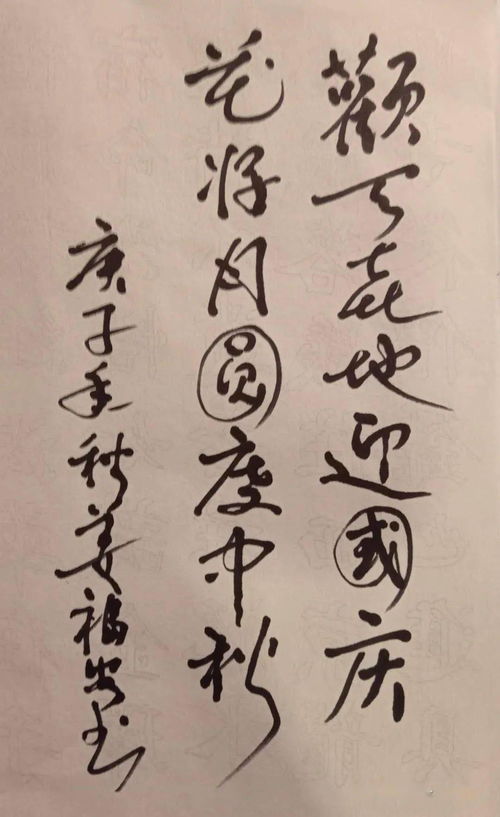 歡天喜地迎國庆
花好月圆度中秋
庚子年秋姜福安书